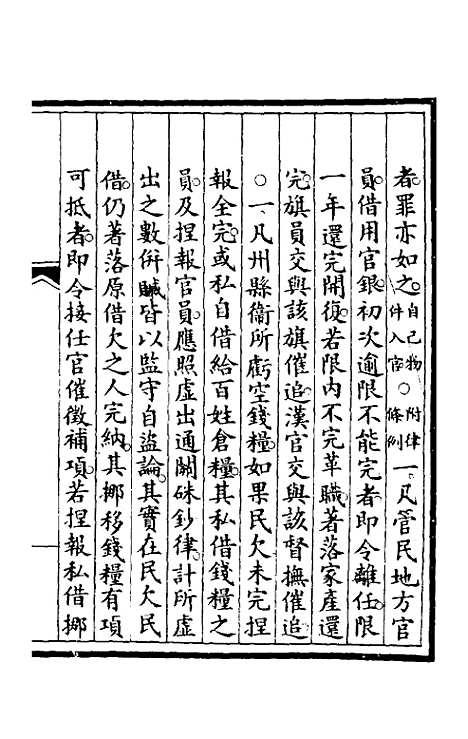 者罪亦如之自己物件入官○附律條例一凡管民地方官
員借用官銀初次逾限不能完者即令離任限
一年還完開復若限内不完革職著落家產還
完旗員交與該旗催追漢官交與該督撫催追
○一凡州縣衞所虧空錢糧如果民欠未完捏
報全完或私自借給百姓倉糧其私借錢糧之
員及捏報官員應照虛出通關硃鈔律計所虛
出之數併贓皆以監守自盜論其實在民欠民
借仍著落原借欠之人完納其挪移錢糧有項
可抵者即令接任官催徵補項若捏報私借挪